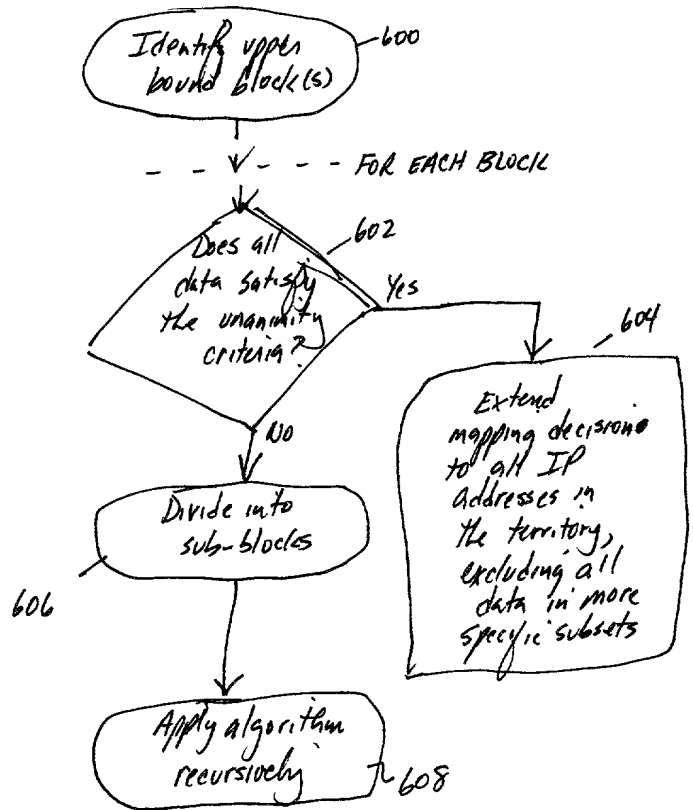 Identify upper
bound block(s)
600
FOR EACH BLOCK
602
Does all
data satisfy
the unanimity
criteria?
Yes
604
Extend
mapping decision
to all IP
addresses in
the territory,
excluding all
data in more
specific subsets
No
Divide into
sub-blocks
606
Apply algorithm
recursively
608